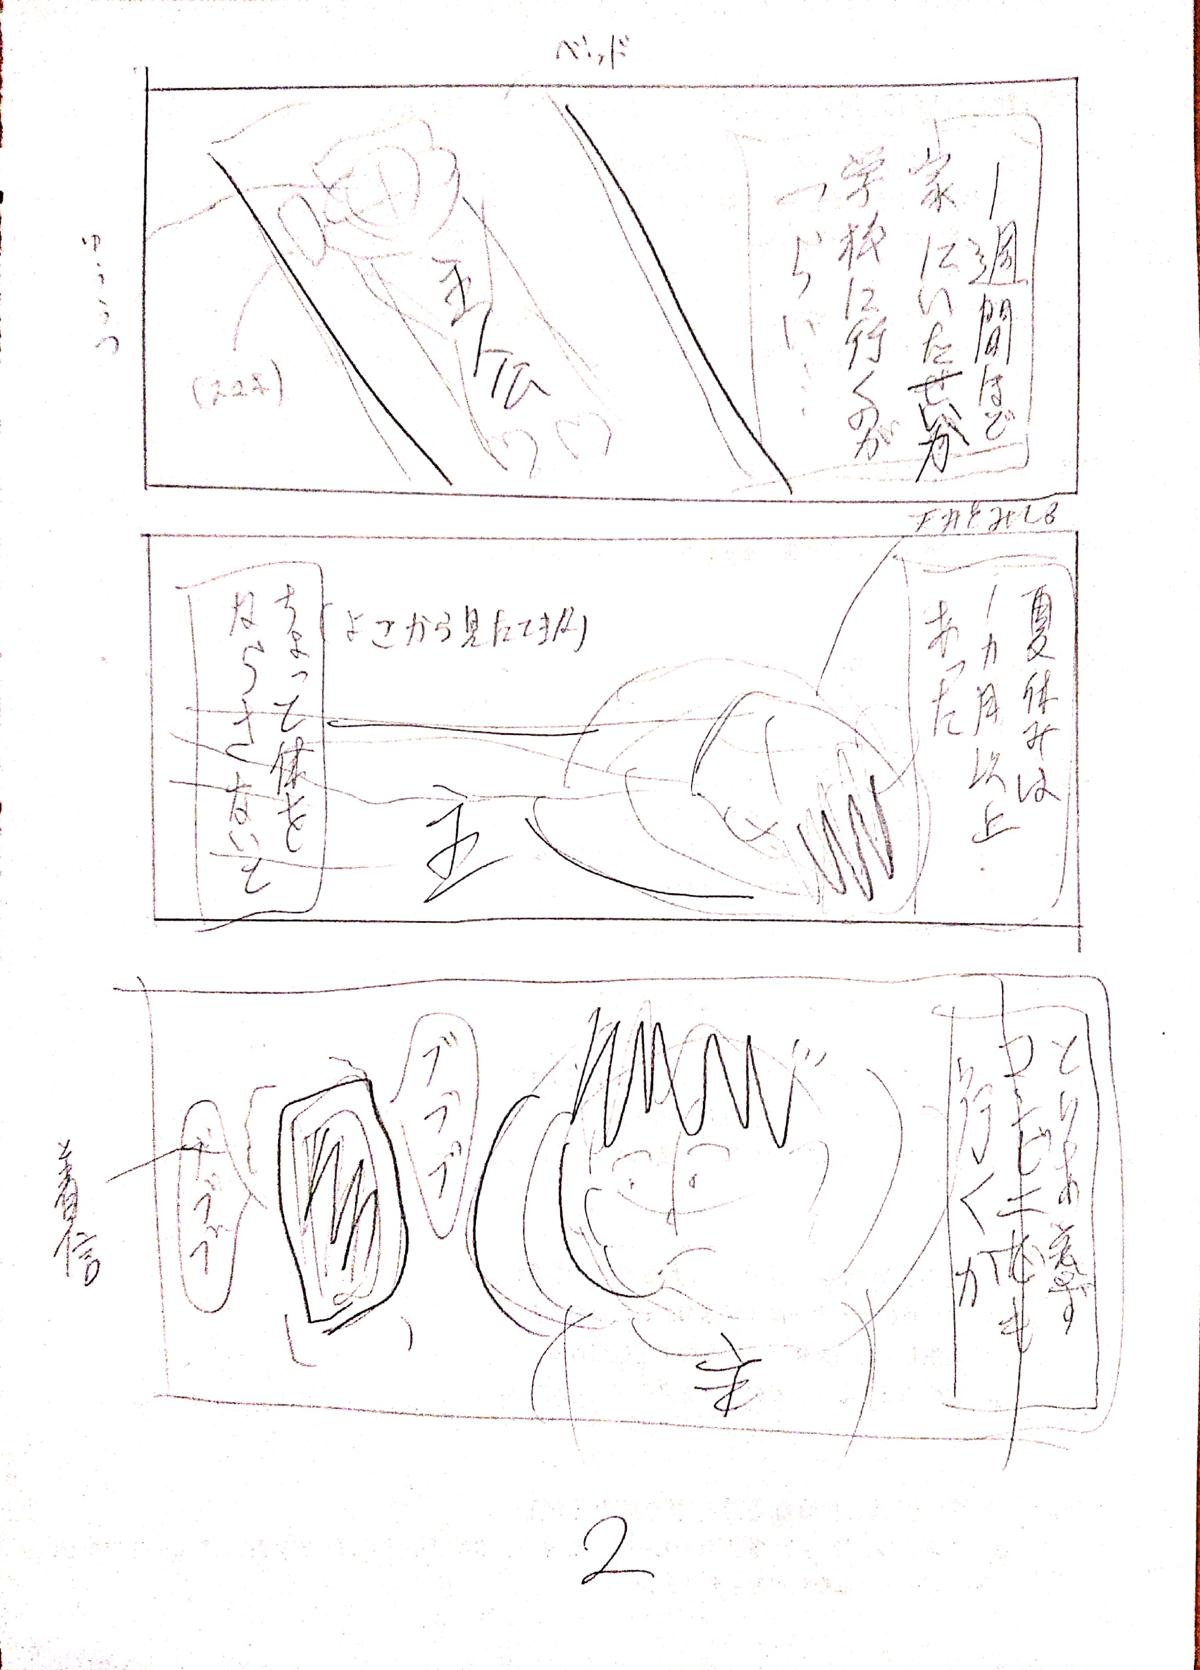 ベッド
1週間ほど
家にいたせいか
学校に行くのが
つらい…
うつぶせ
(スマホ)
主人公
天井をみてる
夏休みは
1ヵ月以上
あった
(よこから見たてます)
主
ちょって体を
ならさないと
とりあえず
コンビニでも
行くか
ブブブ
ブブブ
着信
主
2